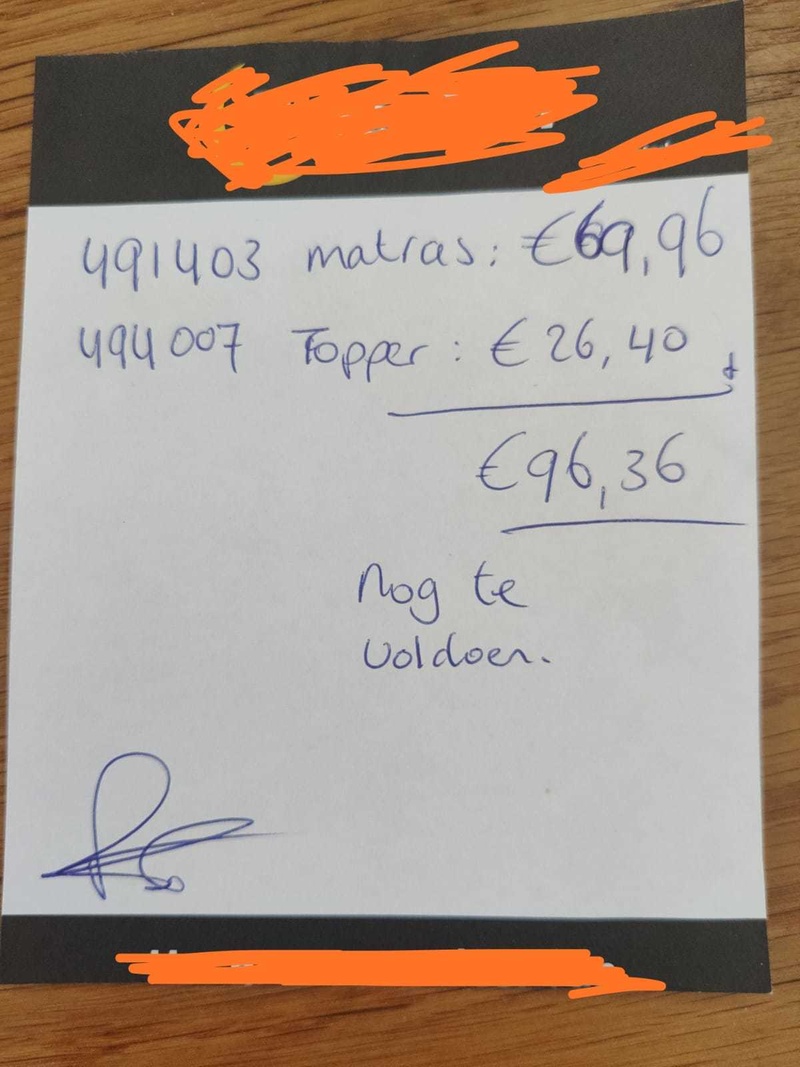 491403 matras: €69,96
494007 Topper: €26,40 +
€96,36
Nog te
voldoen.